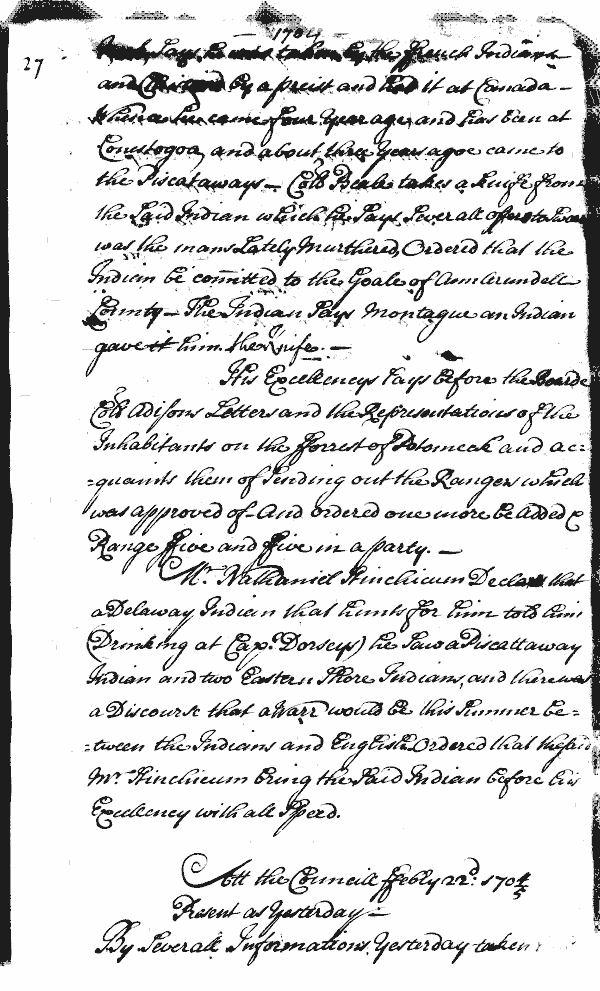 1704
27
says he was taken by the French Indians
and by a preist and had it at Canada -
came four year age, and has been at
Conestogoa, and about three years agoe came to
the Piscataways - Coll Beale takes a knife from
the said Indian which he says severall
was the mans Lately Murthered, Ordered that the
Indian be comitted to the Goale of Ann Arundell
County - The Indian says Montague an Indian
gave it him. the knife. -
His Excellencys Lays before the Boarde
Coll Adisons Letters and the Representations of the
Inhabitants on the fforrest of Potomeck and ac=
=quaints them of sending out the Rangers which
was approved of - And ordered one more be added &
Range ffive and ffive in a party. -
Mr. Nathaniel Hinchicum Declares that
a Delaway Indian that hunts for him told him
(Drinking at Capt. Dorseys) he saw a Piscattaway
Indian and two Eastern Shore Indians, and there was
a Discourse that a Warr would be this summer be=
=tween the Indians and English. Ordered that the said
Mr. Hinchicum bring the said Indian before his
Excellency with all Speed.
Att the Councill ffebry 22d. 1704/5
Present as Yesterday -
By Severall Informations Yesterday taken